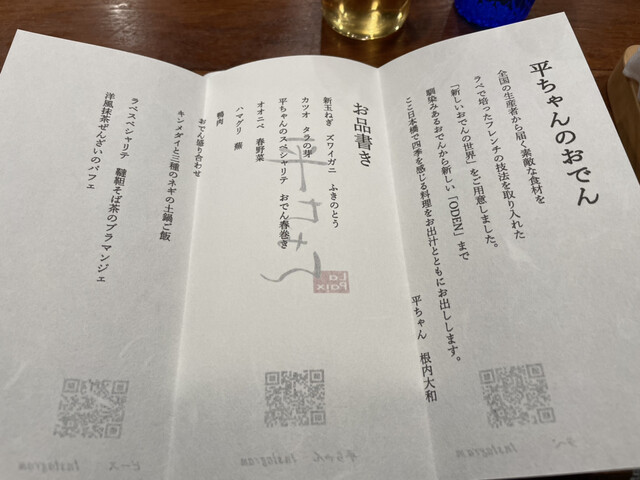 平ちゃんのおでん
全国の生産者から届く素敵な食材を
ラペで培ったフレンチの技法を取り入れた
「新しいおでんの世界」をご用意しました。
馴染みあるおでんから新しい「ODEN」まで
ここ日本橋で四季を感じる料理をお出汁とともにお出しします。
平ちゃん 根内大和
お品書き
新玉ねぎ ズワイガニ ふきのとう
カツオ タラの芽
平ちゃんのスペシャリテ おでん春巻き
オオニベ 春野菜
ハマグリ 蕪
鴨肉
おでん盛り合わせ
キンメダイと三種のネギの土鍋ご飯
ラペスペシャリテ 韃靼そば茶のブラマンジェ
洋風抹茶ぜんざいのパフェ
平ちゃん
La Paix
ピース Instagram
平ちゃん Instagram
ラペ Instagram